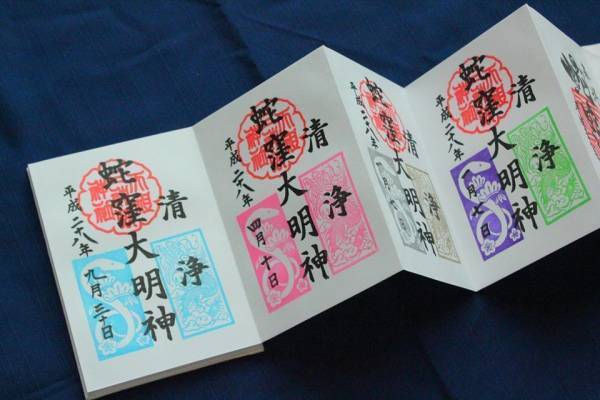 清浄
蛇窪大明神
平成二十八年九月三十日
清浄
蛇窪大明神
平成二十八年四月十日
蛇窪大明神
平成二十八年
清浄
蛇窪大明神
平成二十八年